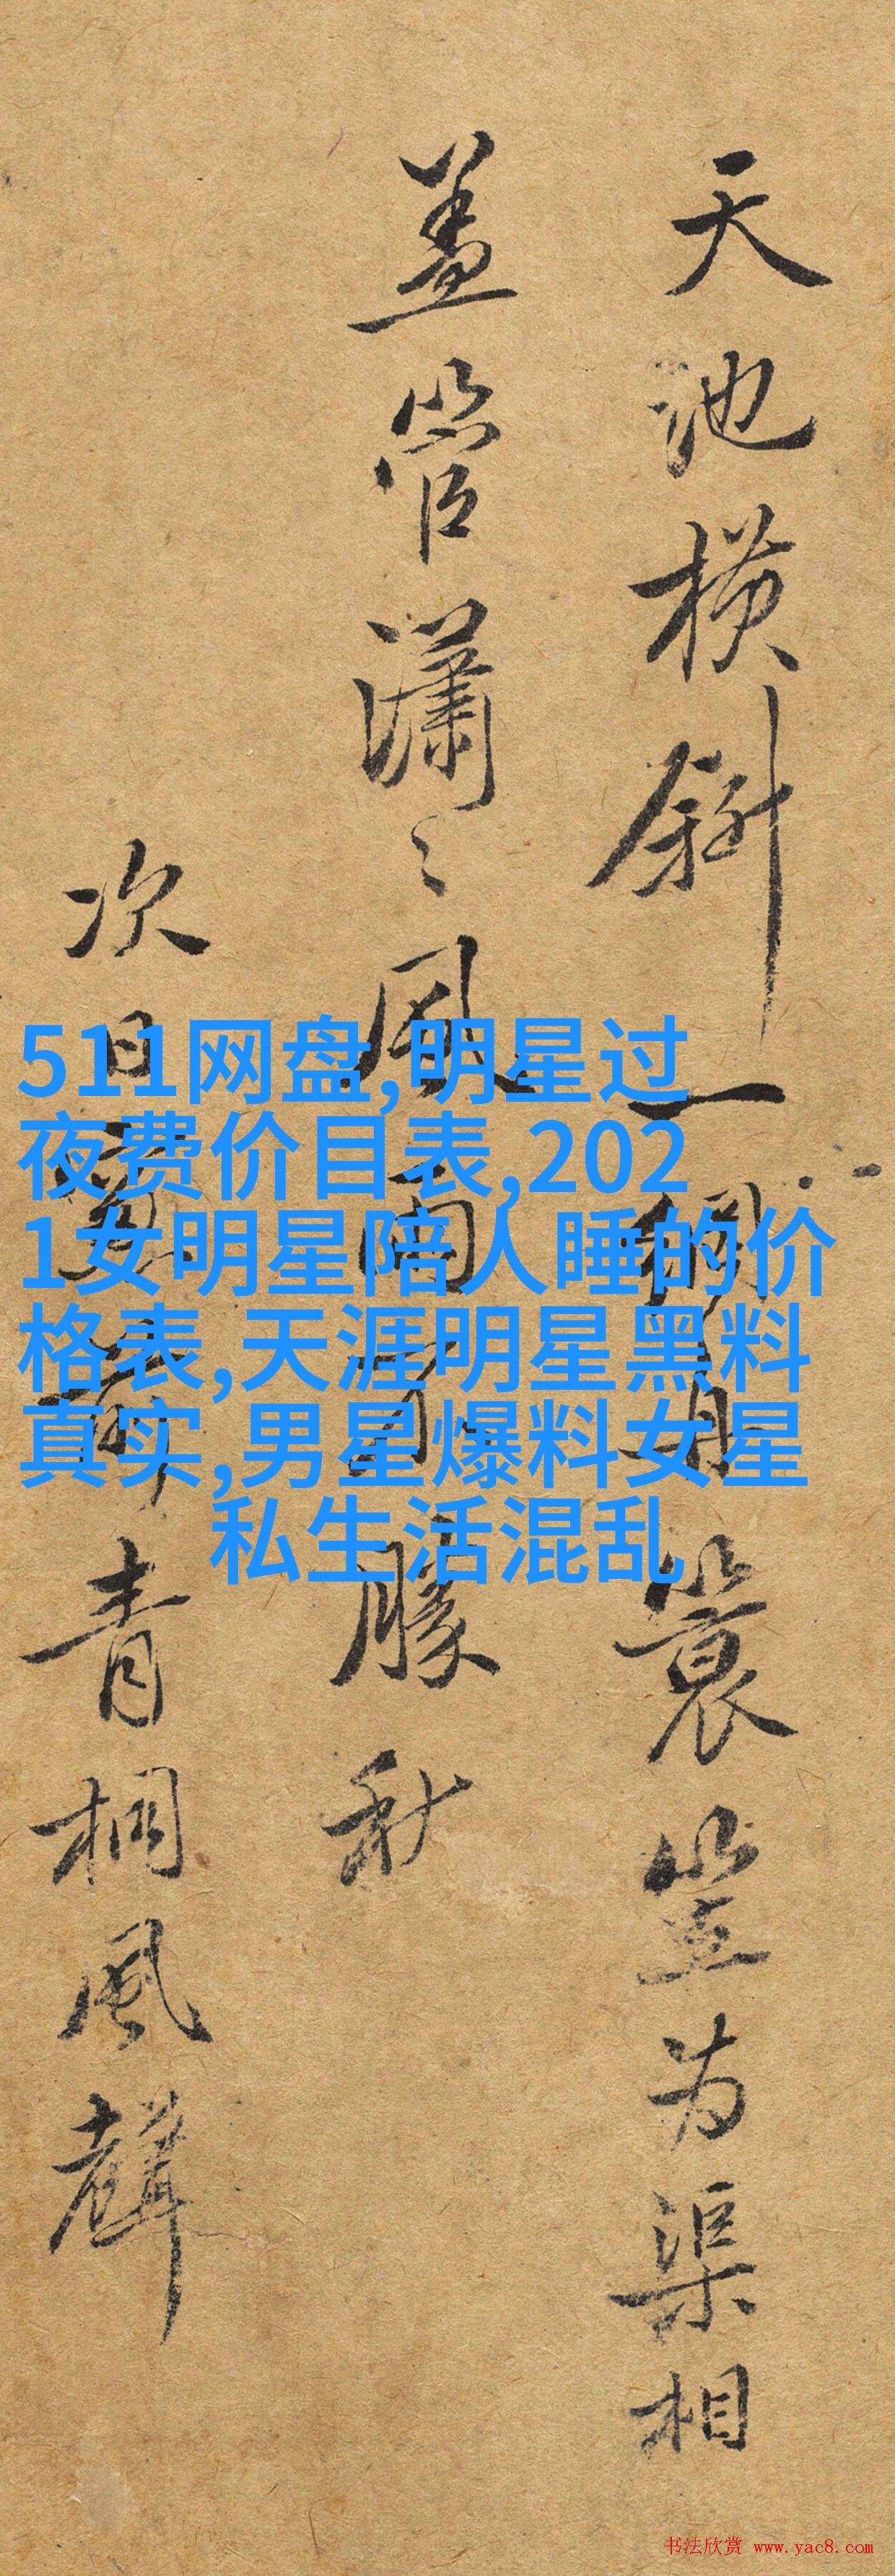 天池横斜一棹身蓑笠为渠相
盖管瀟〻風雨有勝秋
次日
青桐風聲
511网盘,明星过
夜费价目表,202
1女明星陪人睡的价
格表,天涯明星黑料
真实,男星爆料女星
私生活混乱
书法欣赏 www.yac8.com